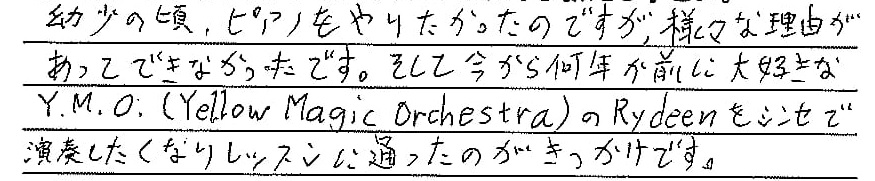 幼少の頃、ピアノをやりたかったのですが、様々な理由が
あってできなかったです。そして今から何年か前に大好きな
Y.M.O. (Yellow Magic Orchestra)のRydeenをシンセで
演奏したくなりレッスンに通ったのがきっかけです。